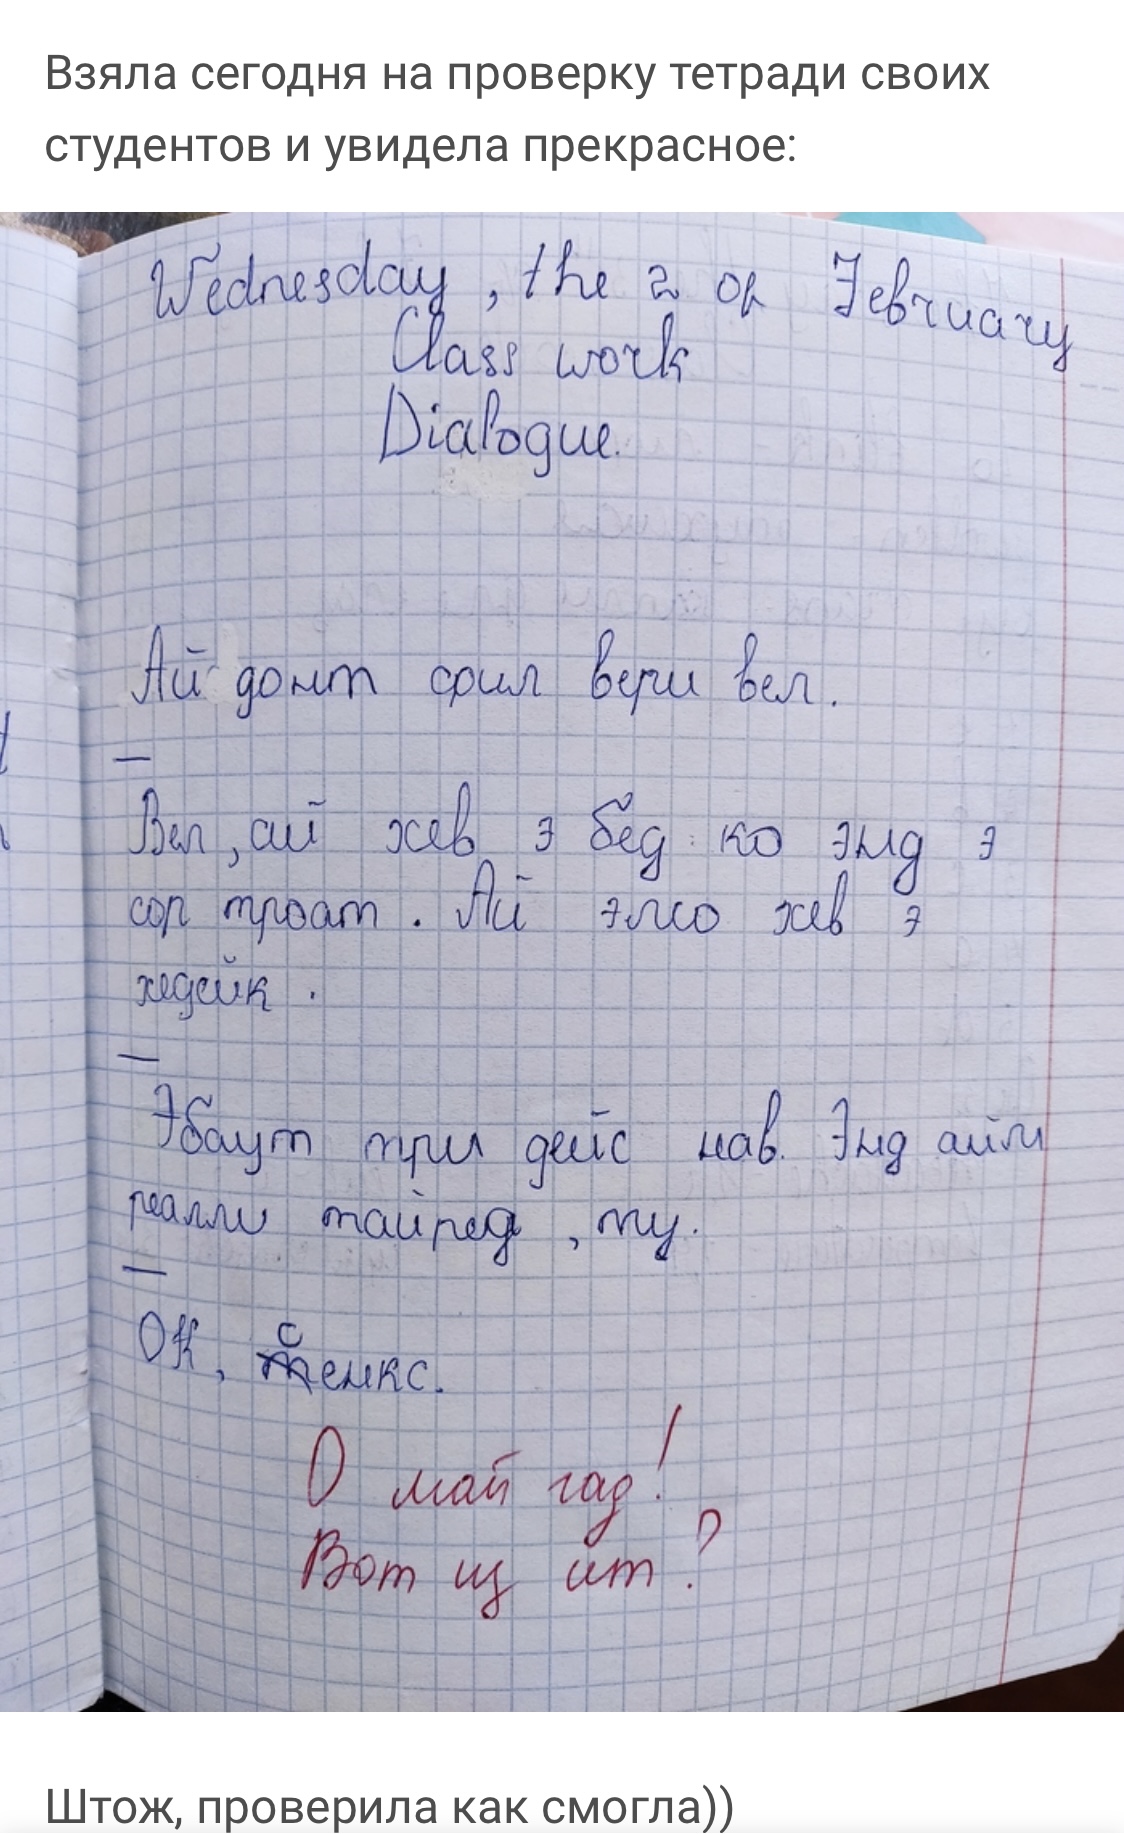 Взяла сегодня на проверку тетради своих
студентов и увидела прекрасное:
Wednesday, the 2 of February
Class work
Dialogue.
Ай донт фил вери вел.
—
Вел, ай хев э бед ко энд э
сор троат. Ай элсо хев э
хедейк.
—
Эбаут три дейс нав. Энд айм
реалли тайред, ту.
—
ОК, сенкс.
О май гад!
Вот из ит?
Штож, проверила как смогла))